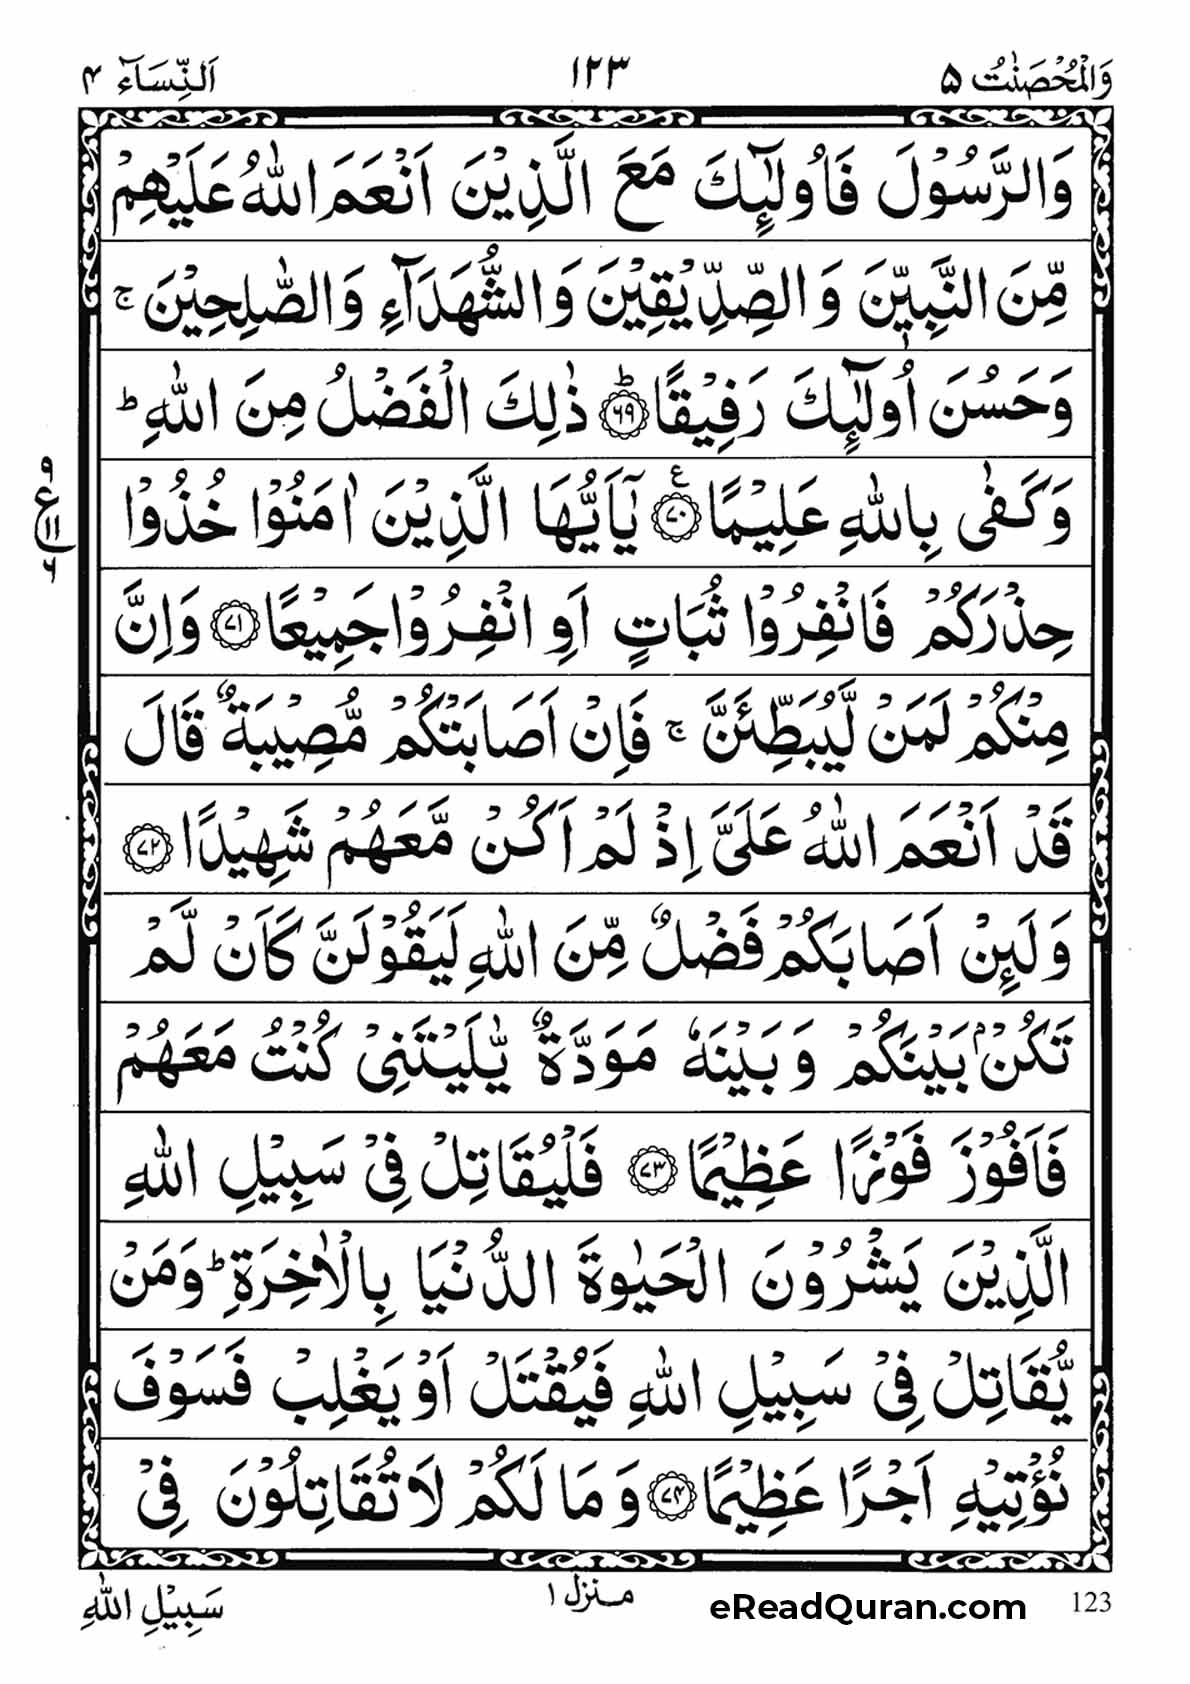 وَالْمُحْصَنٰتُ ۵
۱۲۳
اَلنِّسَآءُ ۴
وَالرَّسُوْلَ فَاُولٰٓئِكَ مَعَ الَّذِيْنَ اَنْعَمَ اللّٰهُ عَلَيْهِمْ
مِّنَ النَّبِيّٖنَ وَالصِّدِّيْقِيْنَ وَالشُّهَدَآءِ وَالصّٰلِحِيْنَ ۚ
وَحَسُنَ اُولٰٓئِكَ رَفِيْقًا ؕ﴿۶۹﴾ ذٰلِكَ الْفَضْلُ مِنَ اللّٰهِ ؕ
وَكَفٰى بِاللّٰهِ عَلِيْمًا ﴿۷۰﴾ ع يٰۤاَيُّهَا الَّذِيْنَ اٰمَنُوْا خُذُوْا
۹ ع ۱۱ ۶
حِذْرَكُمْ فَانْفِرُوْا ثُبَاتٍ اَوِ انْفِرُوْا جَمِيْعًا ﴿۷۱﴾ وَاِنَّ
مِنْكُمْ لَمَنْ لَّيُبَطِّئَنَّ ۚ فَاِنْ اَصَابَتْكُمْ مُّصِيْبَةٌ قَالَ
قَدْ اَنْعَمَ اللّٰهُ عَلَىَّ اِذْ لَمْ اَكُنْ مَّعَهُمْ شَهِيْدًا ﴿۷۲﴾
وَلَئِنْ اَصَابَكُمْ فَضْلٌ مِّنَ اللّٰهِ لَيَقُوْلَنَّ كَاَنْ لَّمْ
تَكُنْۢ بَيْنَكُمْ وَبَيْنَهٗ مَوَدَّةٌ يّٰلَيْتَنِىْ كُنْتُ مَعَهُمْ
فَاَفُوْزَ فَوْزًا عَظِيْمًا ﴿۷۳﴾ فَلْيُقَاتِلْ فِىْ سَبِيْلِ اللّٰهِ
الَّذِيْنَ يَشْرُوْنَ الْحَيٰوةَ الدُّنْيَا بِالْاٰخِرَةِ ؕ وَمَنْ
يُّقَاتِلْ فِىْ سَبِيْلِ اللّٰهِ فَيُقْتَلْ اَوْ يَغْلِبْ فَسَوْفَ
نُؤْتِيْهِ اَجْرًا عَظِيْمًا ﴿۷۴﴾ وَمَا لَكُمْ لَا تُقَاتِلُوْنَ فِىْ
سَبِيْلِ اللّٰهِ
منزل ۱
eReadQuran.com
123